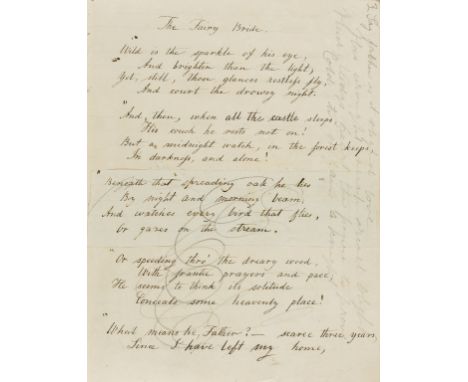 The Fairy Bride.
"Wild is the sparkle of his eye,
And brighter than the light,
Yet, still, those glances restless fly,
And court the drowsy night.
"And, then, when all the castle sleeps
His couch he rests not on!
But a midnight watch, in the forest keeps,
In darkness, and alone!
"Beneath that spreading oak he lies
By night and morning beam,
And watches every bird that flies,
Or gazes on the stream.
"Or speeding thro' the dreary wood
With frantic prayers and pace,
He seems to think its solitude
Conceals some heavenly place!
"What means he, Father? — scarce three years,
Since I have left my home,